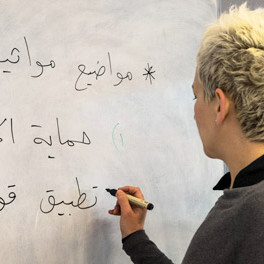 * مواضيع مواثيـ
(١) حماية الأ
تطبيق قو